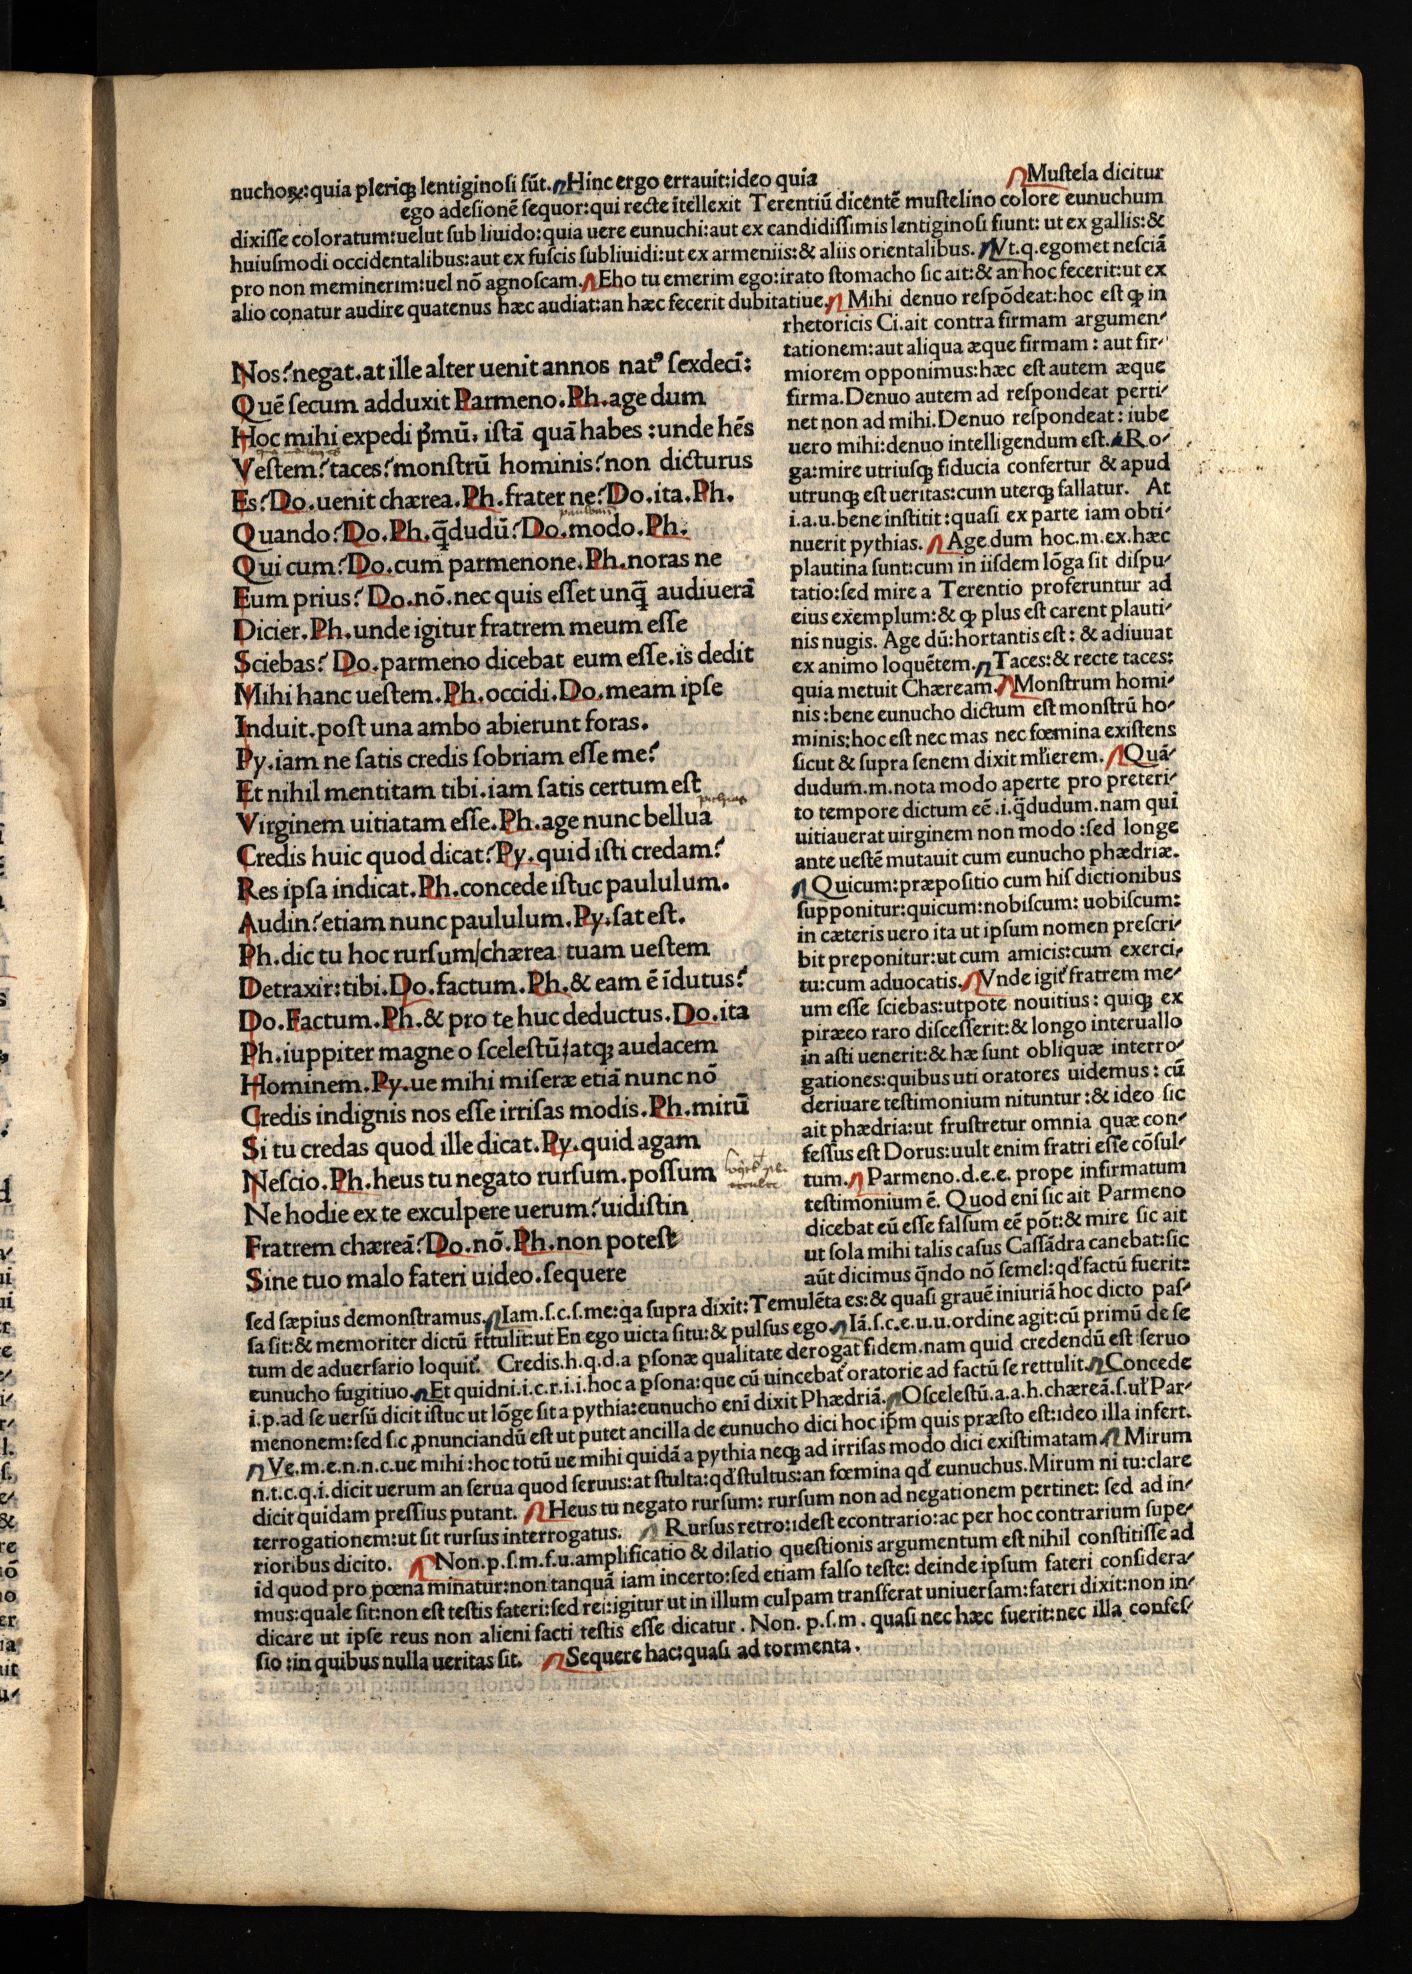 nuchoꝝ:quia pleriqꝫ lentiginoſi sũt. Hinc ergo errauit:ideo quia
Muſtela dicitur
ego adeſionẽ ſequor:qui recte ĩtellexit Terentiũ dicẽtẽ muſtelino colore eunuchum
dixiſſe coloratum:uelut ſub liuido:quia uere eunuchi:aut ex candidiſſimis lentiginoſi fiunt: ut ex gallis:&
huiuſmodi occidentalibus:aut ex fuſcis ſubliuidi:ut ex armeniis:& aliis orientalibus. Vt.q.egomet neſciã
pro non meminerim:uel nõ agnoſcam. Eho tu emerim ego:irato ſtomacho ſic ait:& an hoc fecerit:ut ex
alio conatur audire quatenus hæc audiat:an hæc fecerit dubitatiue. Mihi denuo reſpõdeat:hoc eſt ꝙ in
Nos?negat.at ille alter uenit annos natꝰ ſexdecĩ:
Quẽ ſecum adduxit Parmeno.Ph.age dum
Hoc mihi expedi p̃mũ, iſtã quã habes :unde hẽs
Veſtem?taces?monſtrũ hominis?non dicturus
Es?Do.uenit chærea.Ph.frater ne?Do.ita.Ph.
Quando?Do.Ph.q̃dudũ?Do.modo.Ph.
Qui cum?Do.cum parmenone.Ph.noras ne
Eum prius?Do.nõ.nec quis eſſet unq̃ audiuerã
Dicier.Ph.unde igitur fratrem meum eſſe
Sciebas?Do.parmeno dicebat eum eſſe.is dedit
Mihi hanc ueſtem.Ph.occidi.Do.meam ipſe
Induit.poſt una ambo abierunt foras.
Py.iam ne ſatis credis ſobriam eſſe me?
Et nihil mentitam tibi.iam ſatis certum eſt
Virginem uitiatam eſſe.Ph.age nunc bellua
Credis huic quod dicat?Py.quid iſti credam?
Res ipſa indicat.Ph.concede iſtuc paululum.
Audin?etiam nunc paululum.Py.ſat eſt.
Ph.dic tu hoc rurſum/chærea tuam ueſtem
Detraxir:tibi.Do.factum.Ph.& eam ẽ ĩdutus?
Do.Factum.Ph.& pro te huc deductus.Do.ita
Ph.iuppiter magne o ſceleſtũ/atqꝫ audacem
Hominem.Py.ue mihi miſeræ etiã nunc nõ
Credis indignis nos eſſe irriſas modis.Ph.mirũ
Si tu credas quod ille dicat.Py.quid agam
Neſcio.Ph.heus tu negato rurſum.poſſum
Ne hodie ex te exculpere uerum?uidiſtin
Fratrem chæreã?Do.nõ.Ph.non poteſt
Sine tuo malo fateri uideo.ſequere
rhetoricis Ci.ait contra firmam argumen-
tationem:aut aliqua æque firmam : aut fir-
miorem opponimus:hæc eſt autem æque
firma.Denuo autem ad reſpondeat perti-
net non ad mihi.Denuo reſpondeat: iube
uero mihi:denuo intelligendum eſt. Ro-
ga:mire utriuſqꝫ fiducia confertur & apud
utrunqꝫ eſt ueritas:cum uterqꝫ fallatur. At
i.a.u.bene inſtitit:quaſi ex parte iam obti-
nuerit pythias. Age.dum hoc.m.ex.hæc
plautina ſunt:cum in iiſdem lõga ſit diſpu-
tatio:ſed mire a Terentio proferuntur ad
eius exemplum:& ꝙ plus eſt carent plauti-
nis nugis. Age dũ:hortantis eſt: & adiuuat
ex animo loquẽtem. Taces:& recte taces:
quia metuit Chæream. Monſtrum homi-
nis:bene eunucho dictum eſt monſtrũ ho-
minis:hoc eſt nec mas nec fœmina exiſtens
ſicut & ſupra ſenem dixit mľierem. Quã-
dudum.m.nota modo aperte pro preteri-
to tempore dictum eẽ.i.q̃dudum.nam qui
uitiauerat uirginem non modo :ſed longe
ante ueſtẽ mutauit cum eunucho phædriæ.
Quicum:præpoſitio cum hiſ dictionibus
ſupponitur:quicum:nobiſcum: uobiſcum:
in cæteris uero ita ut ipſum nomen preſcri-
bit preponitur:ut cum amicis:cum exerci-
tu:cum aduocatis. Vnde igit̃ fratrem me-
um eſſe ſciebas:utpote nouitius: quiqꝫ ex
piræeo raro diſceſſerit:& longo interuallo
in aſti uenerit:& hæ ſunt obliquæ interro-
gationes:quibus uti oratores uidemus: cũ
deriuare teſtimonium nituntur:& ideo ſic
ait phædria:ut fruſtretur omnia quæ con-
feſſus eſt Dorus:uult enim fratri eſſe cõſul-
tum. Parmeno.d.e.e. prope infirmatum
teſtimonium ẽ. Quod enĩ ſic ait Parmeno
dicebat eũ eſſe falſum eẽ põt:& mire ſic ait
ut ſola mihi talis caſus Caſſãdra canebat:ſic
aũt dicimus q̃ndo nõ ſemel:qđ factũ fuerit:
ſed ſæpius demonſtramus. Iam.ſ.c.ſ.me:q̃a ſupra dixit:Temulẽta es:& quaſi grauẽ iniuriã hoc dicto paſ-
ſa ſit:& memoriter dictũ r̃ttulit:ut En ego uicta ſitu:& pulſus ego. Iã.ſ.c.e.u.u.ordine agit:cũ primũ de ſe
tum de aduerſario loquit̃. Credis.h.q.d.a p̱ſonæ qualitate derogat fidem.nam quid credendũ eſt ſeruo
eunucho fugitiuo. Et quidni.i.c.r.i.i.hoc a p̱ſona:que cũ uincebat̃ oratorie ad factũ ſe rettulit. Concede
i.p.ad ſe uerſũ dicit iſtuc ut lõge ſit a pythia:eunucho enĩ dixit Phædriã. O ſceleſtũ.a.a.h.chæreã.ſ.uľ Par-
menonem:ſed ſic ꝓnunciandũ eſt ut putet ancilla de eunucho dici hoc ip̃m quis præſto eſt:ideo illa infert.
Ve.m.e.n.n.c.ue mihi:hoc totũ ue mihi quidã a pythia neqꝫ ad irriſas modo dici exiſtimatam. Mirum
n.t.c.q.i.dicit uerum an ſerua quod ſeruus:at ſtulta:qđ ſtultus:an fœmina qđ eunuchus.Mirum ni tu:clare
dicit quidam preſſius putant. Heus tu negato rurſum: rurſum non ad negationem pertinet: ſed ad in-
terrogationem:ut ſit rurſus interrogatus. Rurſus retro:ideſt econtrario:ac per hoc contrarium ſupe-
rioribus dicito. Non.p.ſ.m.f.u.amplificatio & dilatio queſtionis argumentum eſt nihil conſtitiſſe ad
id quod pro pœna minatur:non tanquã iam incerto:ſed etiam falſo teſte: deinde ipſum fateri conſidera-
mus:quale ſit:non eſt teſtis fateri:ſed rei:igitur ut in illum culpam transferat uniuerſam:fateri dixit:non in-
dicare ut ipſe reus non alieni facti teſtis eſſe dicatur. Non. p.ſ.m. quaſi nec hæc fuerit:nec illa confeſ-
ſio:in quibus nulla ueritas ſit. Sequere hac:quaſi ad tormenta.